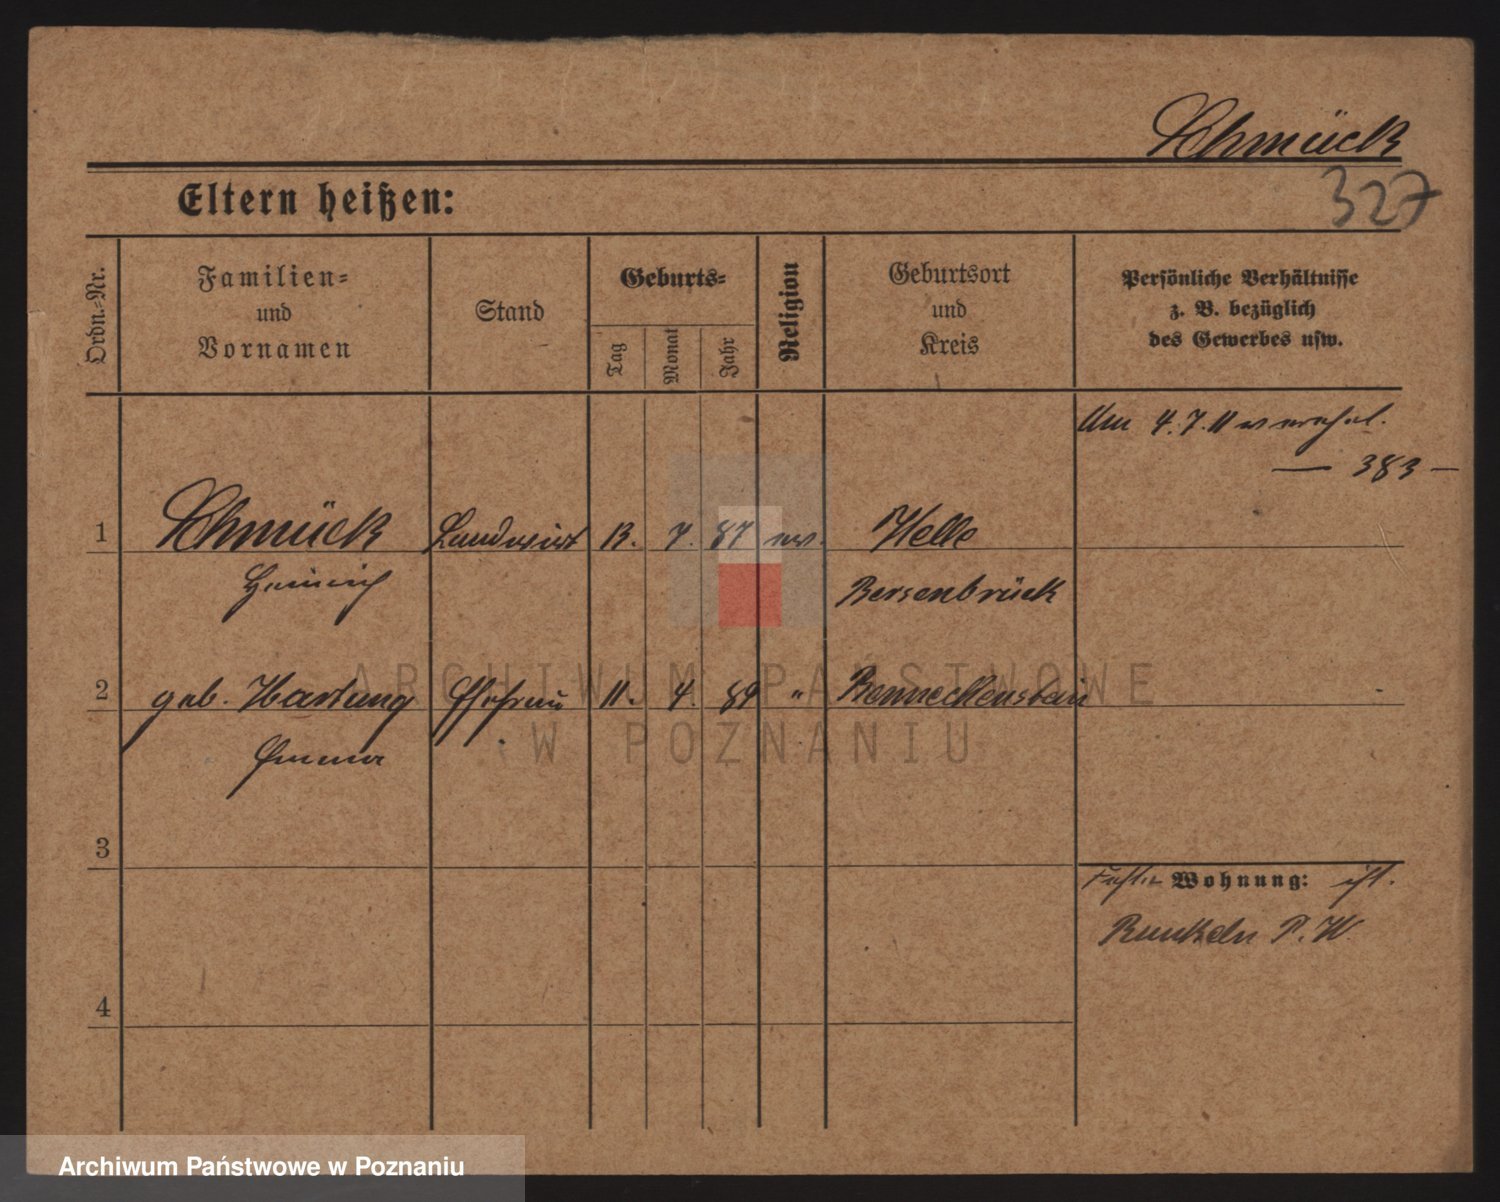 Schmück
327
Eltern heißen:
Ordn.-Nr.
Familien-
und
Vornamen
Stand
Geburts-
Tag
Monat
Jahr
Religion
Geburtsort
und
Kreis
Persönliche Verhältnisse
z. B. bezüglich
des Gewerbes usw.
Am 4.7.11 verehel.
— 383 —
1 Schmück Landwirt 13. 7. 87 ev. Welle
Heinrich Bersenbrück
2 geb. Hartung Ehefrau 11. 4. 89 " Benneckenstein
Emma
3
Wohnung:
P. W.
4
ARCHIWUM PAŃSTWOWE
W POZNANIU
Archiwum Państwowe w Poznaniu